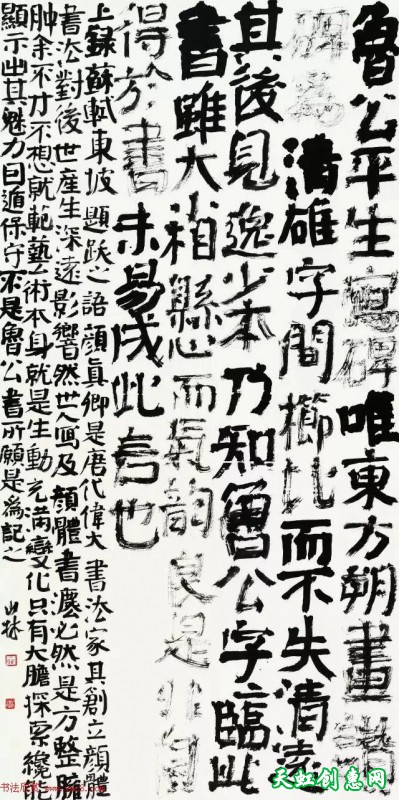 魯公平生寫碑唯東方朔畫讚
為清雄字間櫛比而不失清遠
其後見逸少本乃知魯公字二臨此
書雖大小相懸而氣韻良是非自
得於書未易成此言也
上録蘇軾東坡題跋之語顏真卿是唐代偉大書法家其創立顏體
書法對後世産生深遠影響然世人寫及顏體書灋必然是方整臃
肿余不才不想就範藝術本身就是生動充滿變化只有大膽探索纔能
顯示出其魅力曰遁保守不是魯公書所願是為記之
山林
书法欣赏
天虹创意网